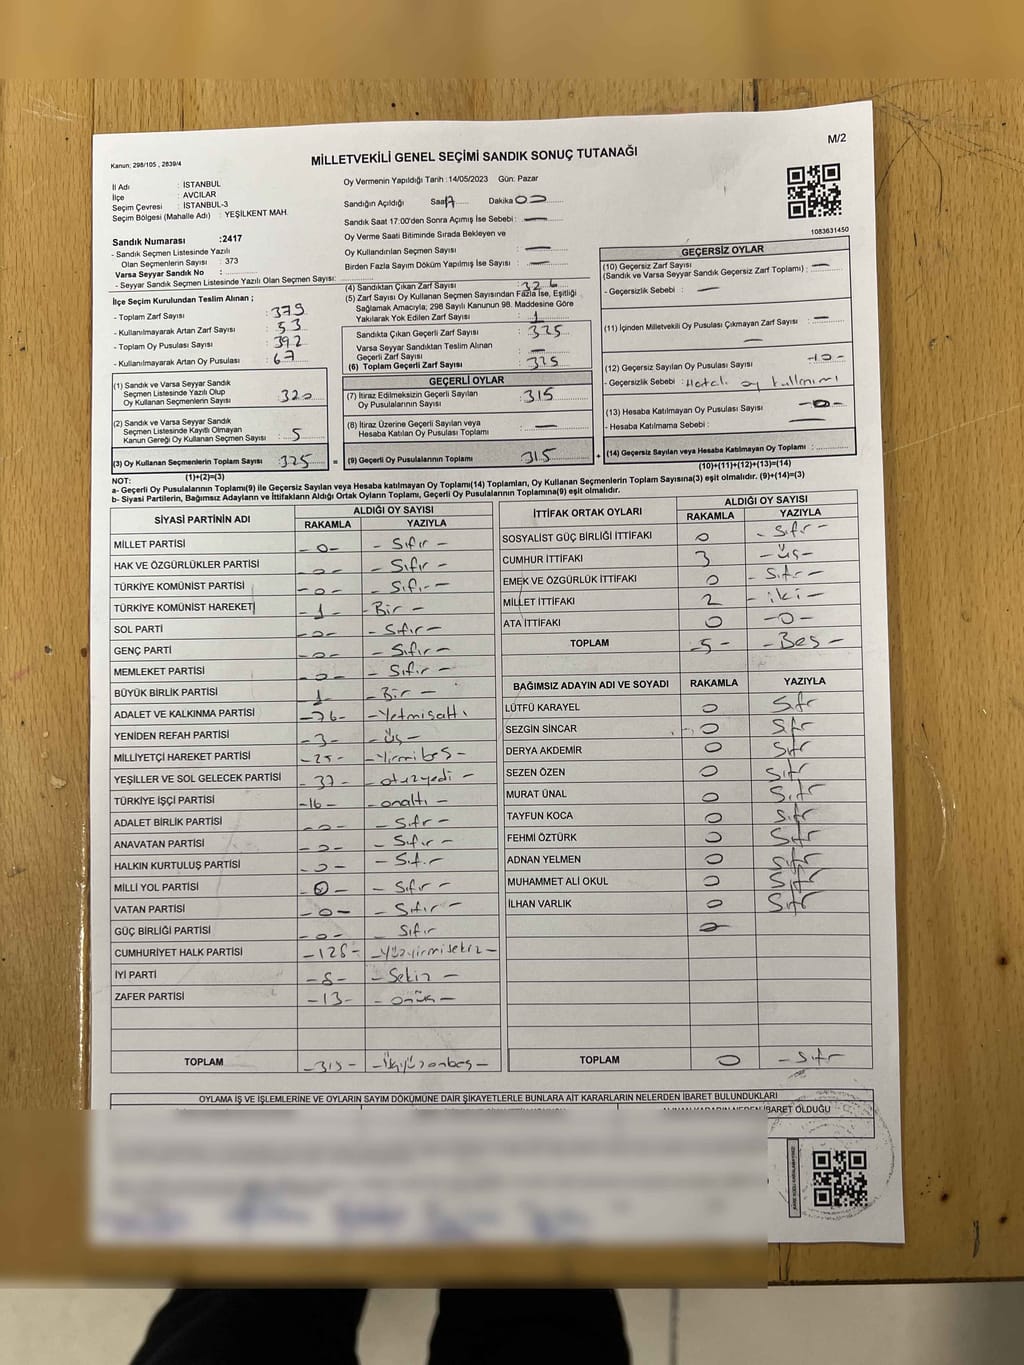 M/2
Kanun: 298/105 , 2839/4
MİLLETVEKİLİ GENEL SEÇİMİ SANDIK SONUÇ TUTANAĞI
İl Adı : İSTANBUL
İlçe : AVCILAR
Seçim Çevresi : İSTANBUL-3
Seçim Bölgesi (Mahalle Adı) : YEŞİLKENT MAH.
Sandık Numarası :2417
- Sandık Seçmen Listesinde Yazılı
Olan Seçmenlerin Sayısı : 373
Varsa Seyyar Sandık No :
- Seyyar Sandık Seçmen Listesinde Yazılı Olan Seçmen Sayısı:
Oy Vermenin Yapıldığı Tarih :14/05/2023 Gün: Pazar
Sandığın Açıldığı Saat Dakika 00
Sandık Saat 17:00'den Sonra Açımış İse Sebebi : —
Oy Verme Saati Bitiminde Sırada Bekleyen ve
Oy Kullandırılan Seçmen Sayısı : —
Birden Fazla Sayım Döküm Yapılmış İse Sayısı : —
1083631450
İlçe Seçim Kurulundan Teslim Alınan ;
- Toplam Zarf Sayısı : 379
- Kullanılmayarak Artan Zarf Sayısı : 53
- Toplam Oy Pusulası Sayısı : 392
- Kullanılmayarak Artan Oy Pusulası : 67
(1) Sandık ve Varsa Seyyar Sandık
Seçmen Listesinde Yazılı Olup
Oy Kullanan Seçmenlerin Sayısı : 320
(2) Sandık ve Varsa Seyyar Sandık
Seçmen Listesinde Kayıtlı Olmayan
Kanun Gereği Oy Kullanan Seçmen Sayısı : 5
(3) Oy Kullanan Seçmenlerin Toplam Sayısı : 325
(1)+(2)=(3)
(4) Sandıktan Çıkan Zarf Sayısı : 326
(5) Zarf Sayısı Oy Kullanan Seçmen Sayısından Fazla İse, Eşitliği
Sağlamak Amacıyla; 298 Sayılı Kanunun 98. Maddesine Göre
Yakılarak Yok Edilen Zarf Sayısı : 1
Sandıkta Çıkan Geçerli Zarf Sayısı : 325
Varsa Seyyar Sandıktan Teslim Alınan
Geçerli Zarf Sayısı : —
(6) Toplam Geçerli Zarf Sayısı : 325
GEÇERLİ OYLAR
(7) İtiraz Edilmeksizin Geçerli Sayılan
Oy Pusulalarının Sayısı : 315
(8) İtiraz Üzerine Geçerli Sayılan veya
Hesaba Katılan Oy Pusulası Toplamı : —
= (9) Geçerli Oy Pusulalarının Toplamı : 315 +
GEÇERSİZ OYLAR
(10) Geçersiz Zarf Sayısı
(Sandık ve Varsa Seyyar Sandık Geçersiz Zarf Toplamı) : —
- Geçersizlik Sebebi : —
(11) İçinden Milletvekili Oy Pusulası Çıkmayan Zarf Sayısı : —
—
(12) Geçersiz Sayılan Oy Pusulası Sayısı : -10-
- Geçersizlik Sebebi : Hatalı oy kullanımı
(13) Hesaba Katılmayan Oy Pusulası Sayısı : -0-
- Hesaba Katılmama Sebebi : —
(14) Geçersiz Sayılan veya Hesaba Katılmayan Oy Toplamı :
(10)+(11)+(12)+(13)=(14)
NOT:
a- Geçerli Oy Pusulalarının Toplamı(9) ile Geçersiz Sayılan veya Hesaba katılmayan Oy Toplamı(14) Toplamları, Oy Kullanan Seçmenlerin Toplam Sayısına(3) eşit olmalıdır. (9)+(14)=(3)
b- Siyasi Partilerin, Bağımsız Adayların ve İttifakların Aldığı Ortak Oyların Toplamı, Geçerli Oy Pusulalarının Toplamına(9) eşit olmalıdır.
SİYASİ PARTİNİN ADI ALDIĞI OY SAYISI
RAKAMLA YAZIYLA
MİLLET PARTİSİ -0- - Sıfır -
HAK VE ÖZGÜRLÜKLER PARTİSİ -0- - Sıfır -
TÜRKİYE KOMÜNİST PARTİSİ -0- - Sıfır -
TÜRKİYE KOMÜNİST HAREKETİ -1- -Bir -
SOL PARTİ -0- - Sıfır -
GENÇ PARTİ -0- - Sıfır -
MEMLEKET PARTİSİ -0- - Sıfır -
BÜYÜK BİRLİK PARTİSİ 1 - Bir -
ADALET VE KALKINMA PARTİSİ -76- -Yetmişaltı
YENİDEN REFAH PARTİSİ -3- - üş -
MİLLİYETÇİ HAREKET PARTİSİ -25- -Yirmibeş-
YEŞİLLER VE SOL GELECEK PARTİSİ -37- - otuzyedi -
TÜRKİYE İŞÇİ PARTİSİ -16- - onaltı -
ADALET BİRLİK PARTİSİ -0- - Sıfır -
ANAVATAN PARTİSİ -0- - Sıfır -
HALKIN KURTULUŞ PARTİSİ -0- - Sıfır
MİLLİ YOL PARTİSİ -0- - Sıfır -
VATAN PARTİSİ -0- - Sıfır -
GÜÇ BİRLİĞİ PARTİSİ -0- Sıfır
CUMHURİYET HALK PARTİSİ -128- -Yüzyirmisekiz-
İYİ PARTİ -8- - Sekiz -
ZAFER PARTİSİ -13- - onüç -
TOPLAM -315- -Üçyüzonbeş-
İTTİFAK ORTAK OYLARI ALDIĞI OY SAYISI
RAKAMLA YAZIYLA
SOSYALİST GÜÇ BİRLİĞİ İTTİFAKI 0 - Sıfır -
CUMHUR İTTİFAKI 3 - Üş -
EMEK VE ÖZGÜRLÜK İTTİFAKI 0 - Sıfır -
MİLLET İTTİFAKI 2 - iki -
ATA İTTİFAKI 0 -0-
TOPLAM -5- - Beş -
BAĞIMSIZ ADAYIN ADI VE SOYADI RAKAMLA YAZIYLA
LÜTFÜ KARAYEL 0 Sıfr
SEZGİN SİNCAR 0 Sıfr
DERYA AKDEMİR 0 Sıfr
SEZEN ÖZEN 0 Sıfr
MURAT ÜNAL 0 Sıfr
TAYFUN KOCA 0 Sıfr
FEHMİ ÖZTÜRK 0 Sıfr
ADNAN YELMEN 0 Sıfr
MUHAMMET ALİ OKUL 0 Sıfr
İLHAN VARLIK 0 Sıfr
TOPLAM 0 - Sıfr
OYLAMA İŞ VE İŞLEMLERİNE VE OYLARIN SAYIM DÖKÜMÜNE DAİR ŞİKAYETLERLE BUNLARA AİT KARARLARIN NELERDEN İBARET BULUNDUKLARI
İBARET OLDUĞU